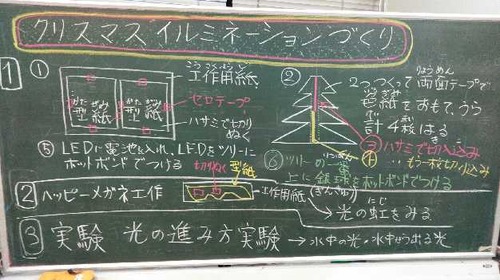 クリスマスイルミネーションづくり
1
①
こうさくようし
工作用紙
かたがみ
型紙
かたがみ
型紙
セロテープ
ハサミで切り
ぬく
②
2つつくって両面テープで
りょうめん
型紙をおもて、うら
計4枚はる
③ハサミで切り込み
④
もう一枚切り込み
⑤LEDに電池を入れ、LEDをツリーに
ホットボンドでつける
⑥ツリーの一番
上に銀球をホットボンドでつける
(ぎんきゅう)
2
ハッピーメガネ工作
切りぬく
型紙
工作用紙
→光の虹をみる
にじ
3
実験 光の進み方実験→水中の光・水中から出る光